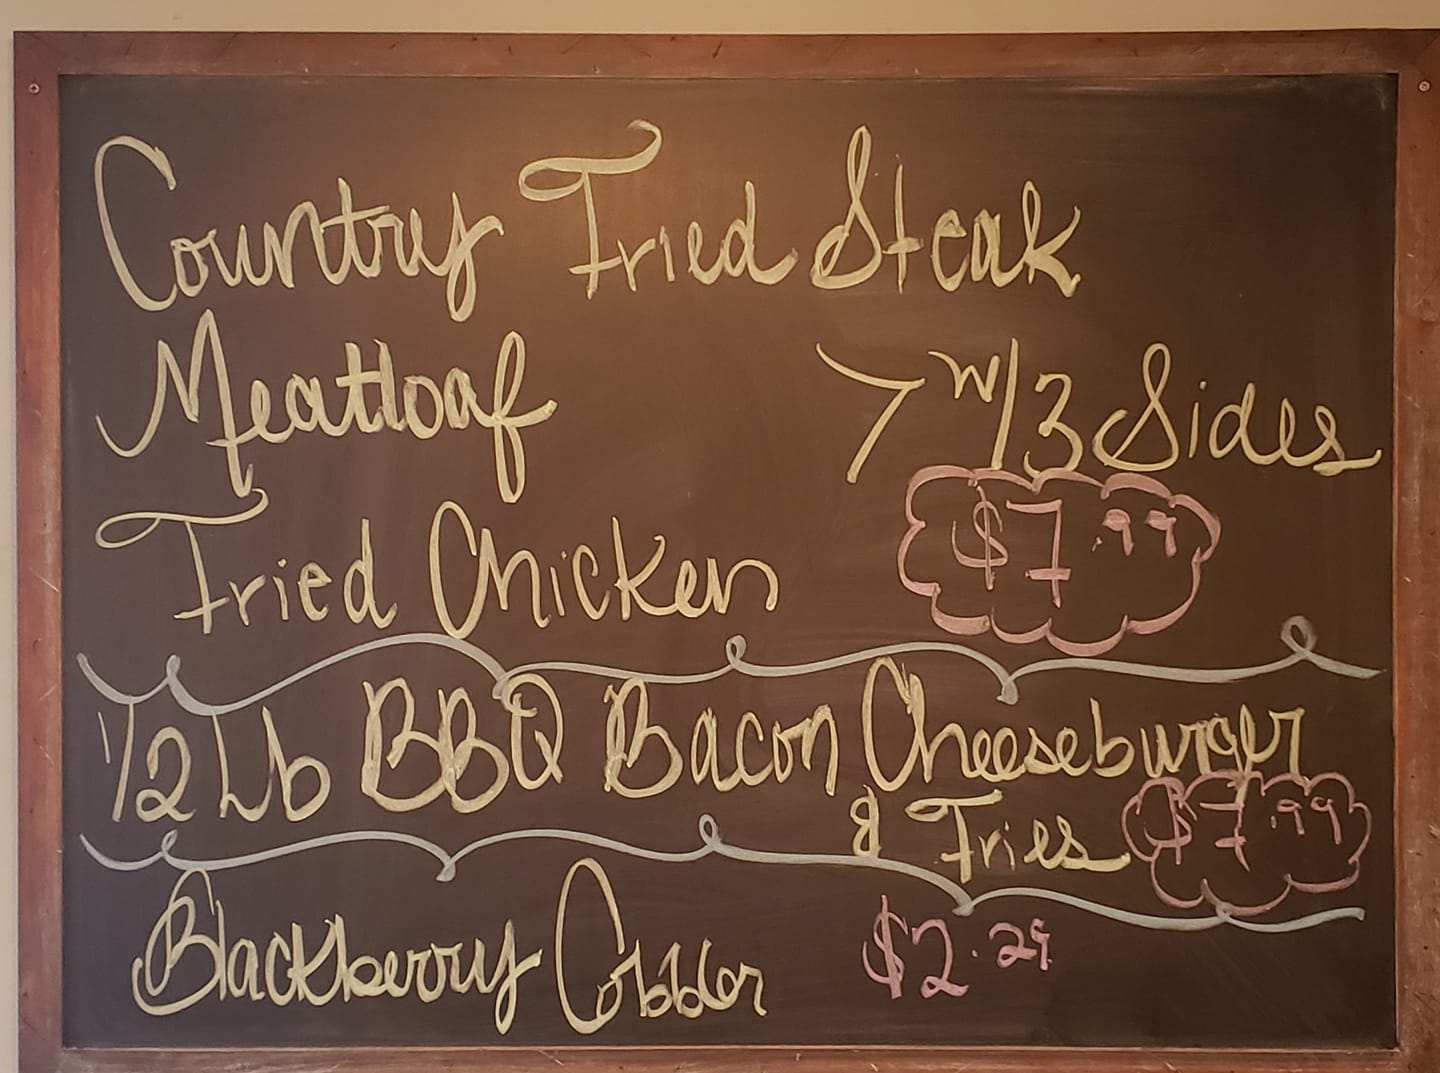 Country Fried Steak
Meatloaf > w/3 Sides
$7.99
Fried Chicken
1/2 Lb BBQ Bacon Cheeseburger
& Fries $7.99
Blackberry Cobbler $2.29